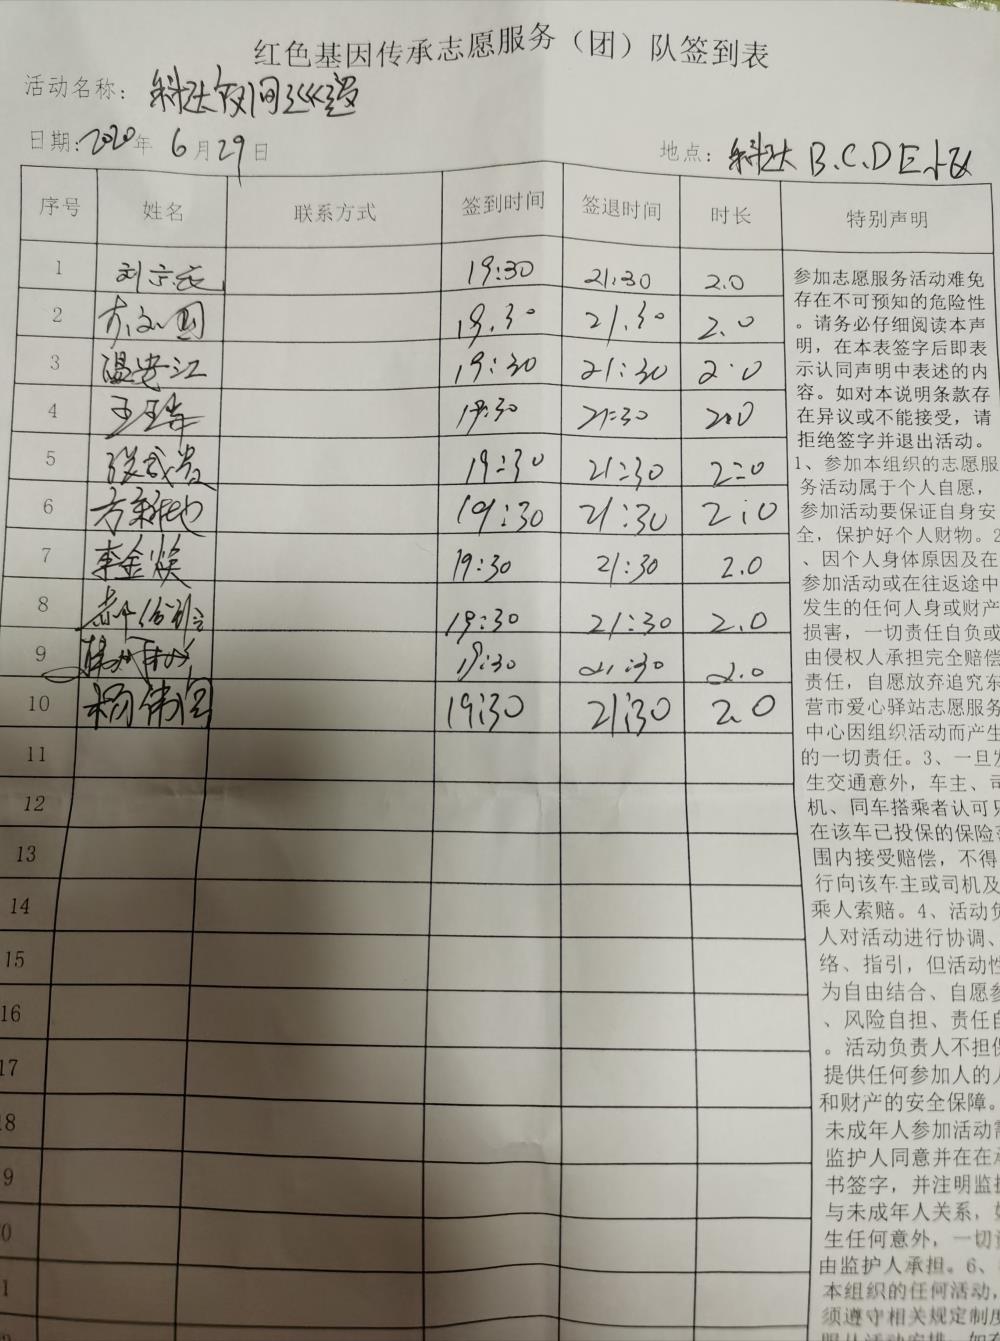 红色基因传承志愿服务（团）队签到表
活动名称：科达夜间巡逻
日期：2020年 6月29日 地点：科达 B.C.D E小区
序号 姓名 联系方式 签到时间 签退时间 时长 特别声明
1 19:30 21:30 2.0
2 19.30 21.30 2.0
3 19:30 21:30 2.0
4 19:30 21:30 2.0
5 19:30 21:30 2:0
6 19:30 21:30 2:0
7 李金焕 19:30 21:30 2.0
8 19:30 21:30 2.0
9 19:30 21:30 2.0
10 杨伟 19:30 21:30 2.0
11
12
13
14
15
16
17
18
9
0
1
参加志愿服务活动难免
存在不可预知的危险性
。请务必仔细阅读本声
明，在本表签字后即表
示认同声明中表述的内
容。如对本说明条款存
在异议或不能接受，请
拒绝签字并退出活动。
1、参加本组织的志愿服
务活动属于个人自愿，
参加活动要保证自身安
全，保护好个人财物。2
、因个人身体原因及在
参加活动或在往返途中
发生的任何人身或财产
损害，一切责任自负或
由侵权人承担完全赔偿
责任，自愿放弃追究东
营市爱心驿站志愿服务
中心因组织活动而产生
的一切责任。3、一旦发
生交通意外，车主、司
机、同车搭乘者认可只
在该车已投保的保险范
围内接受赔偿，不得
行向该车主或司机及
乘人索赔。4、活动负
人对活动进行协调、
络、指引，但活动性
为自由结合、自愿参
、风险自担、责任自
。活动负责人不担保
提供任何参加人的人
和财产的安全保障。
未成年人参加活动需
监护人同意并在在承
书签字，并注明监护
与未成年人关系，如
生任何意外，一切责
由监护人承担。6、
本组织的任何活动，
须遵守相关规定制度